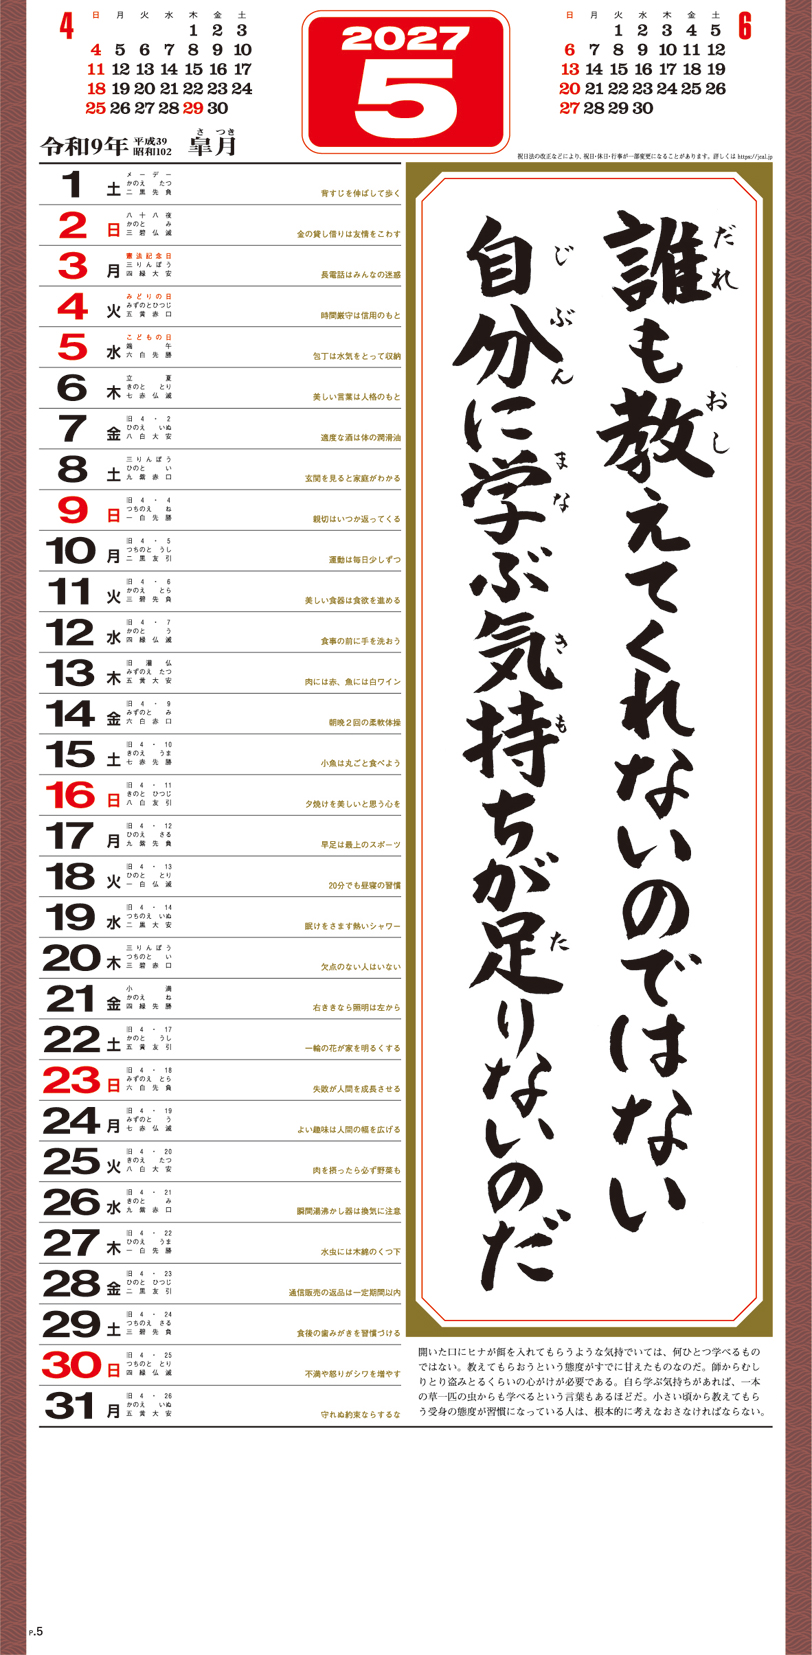 4
日 月 火 水 木 金 土
1 2 3
4 5 6 7 8 9 10
11 12 13 14 15 16 17
18 19 20 21 22 23 24
25 26 27 28 29 30
2027
5
6
日 月 火 水 木 金 土
1 2 3 4 5
6 7 8 9 10 11 12
13 14 15 16 17 18 19
20 21 22 23 24 25 26
27 28 29 30
令和9年 平成39 昭和102 皐月 さつき
祝日法の改正などにより、祝日・休日・行事が一部変更になることがあります。詳しくは https://jcal.jp
1 土 メーデー かのえ たつ 二黒先負 背すじを伸ばして歩く
2 日 八十八夜 かのと み 三碧仏滅 金の貸し借りは友情をこわす
3 月 憲法記念日 三りんぼう 四緑大安 長電話はみんなの迷惑
4 火 みどりの日 みずのとひつじ 五黄赤口 時間厳守は信用のもと
5 水 こどもの日 端午 六白先勝 包丁は水気をとって収納
6 木 立夏 きのと とり 七赤仏滅 美しい言葉は人格のもと
7 金 旧4・2 ひのえ いぬ 八白大安 適度な酒は体の潤滑油
8 土 三りんぼう ひのと い 九紫赤口 玄関を見ると家庭がわかる
9 日 旧4・4 つちのえ ね 一白先勝 親切はいつか返ってくる
10 月 旧4・5 つちのと うし 二黒友引 運動は毎日少しずつ
11 火 旧4・6 かのえ とら 三碧先負 美しい食器は食欲を進める
12 水 旧4・7 かのと う 四緑仏滅 食事の前に手を洗おう
13 木 旧灌仏 みずのえ たつ 五黄大安 肉には赤、魚には白ワイン
14 金 旧4・9 みずのと み 六白赤口 朝晩2回の柔軟体操
15 土 旧4・10 きのえ うま 七赤先勝 小魚は丸ごと食べよう
16 日 旧4・11 きのと ひつじ 八白友引 夕焼けを美しいと思う心を
17 月 旧4・12 ひのえ さる 九紫先負 早足は最上のスポーツ
18 火 旧4・13 ひのと とり 一白仏滅 20分でも昼寝の習慣
19 水 旧4・14 つちのえ いぬ 二黒大安 眠けをさます熱いシャワー
20 木 三りんぼう つちのと い 三碧赤口 欠点のない人はいない
21 金 小満 かのえ ね 四緑先勝 右ききなら照明は左から
22 土 旧4・17 かのと うし 五黄友引 一輪の花が家を明るくする
23 日 旧4・18 みずのえ とら 六白先負 失敗が人間を成長させる
24 月 旧4・19 みずのと う 七赤仏滅 よい趣味は人間の幅を広げる
25 火 旧4・20 きのえ たつ 八白大安 肉を摂ったら必ず野菜も
26 水 旧4・21 きのと み 九紫赤口 瞬間湯沸かし器は換気に注意
27 木 旧4・22 ひのえ うま 一白先勝 水虫には木綿のくつ下
28 金 旧4・23 ひのと ひつじ 二黒友引 通信販売の返品は一定期間以内
29 土 旧4・24 つちのえ さる 三碧先負 食後の歯みがきを習慣づける
30 日 旧4・25 つちのと とり 四緑仏滅 不満や怒りがシワを増やす
31 月 旧4・26 かのえ いぬ 五黄大安 守れぬ約束ならするな
誰も教えてくれないのではない
だれ おし
自分に学ぶ気持ちが足りないのだ
じぶん まな きも た
開いた口にヒナが餌を入れてもらうような気持でいては、何ひとつ学べるもの
ではない。教えてもらおうという態度がすでに甘えたものなのだ。師からむし
りとり盗みとるくらいの心がけが必要である。自ら学ぶ気持ちがあれば、一本
の草一匹の虫からも学べるという言葉もあるほどだ。小さい頃から教えてもら
う受身の態度が習慣になっている人は、根本的に考えなおさなければならない。
P.5